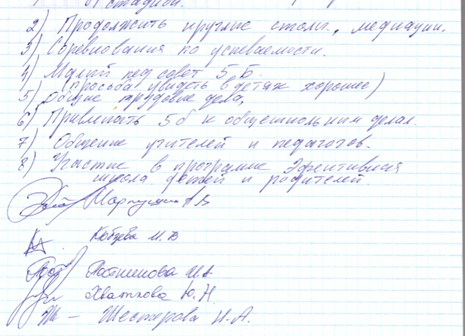 2) Продолжить круглые столы, медиации.
3) Соревнования по успеваемости.
4) Малый пед совет 5 Б.
(просьба увидеть в детях хорошее)
5) Общие трудовые дела,
6) Привлекать 5б к общешкольным делам
7) Общение учителей и педагогов.
8) Участие в программе Эффективная
школа детей и родителей
Кобцева М.В
Хваткова Ю.Н.
Шестерова Н.А.